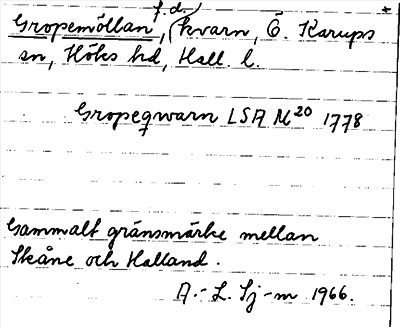 Gropemöllan, f.d. kvarn, Ö. Karups
sn, Höks hd, Hall. l.
Gropeqwarn LSA M20 1778
Gammalt gränsmärke mellan
Skåne och Halland.
A.-L. Sj-m 1966.